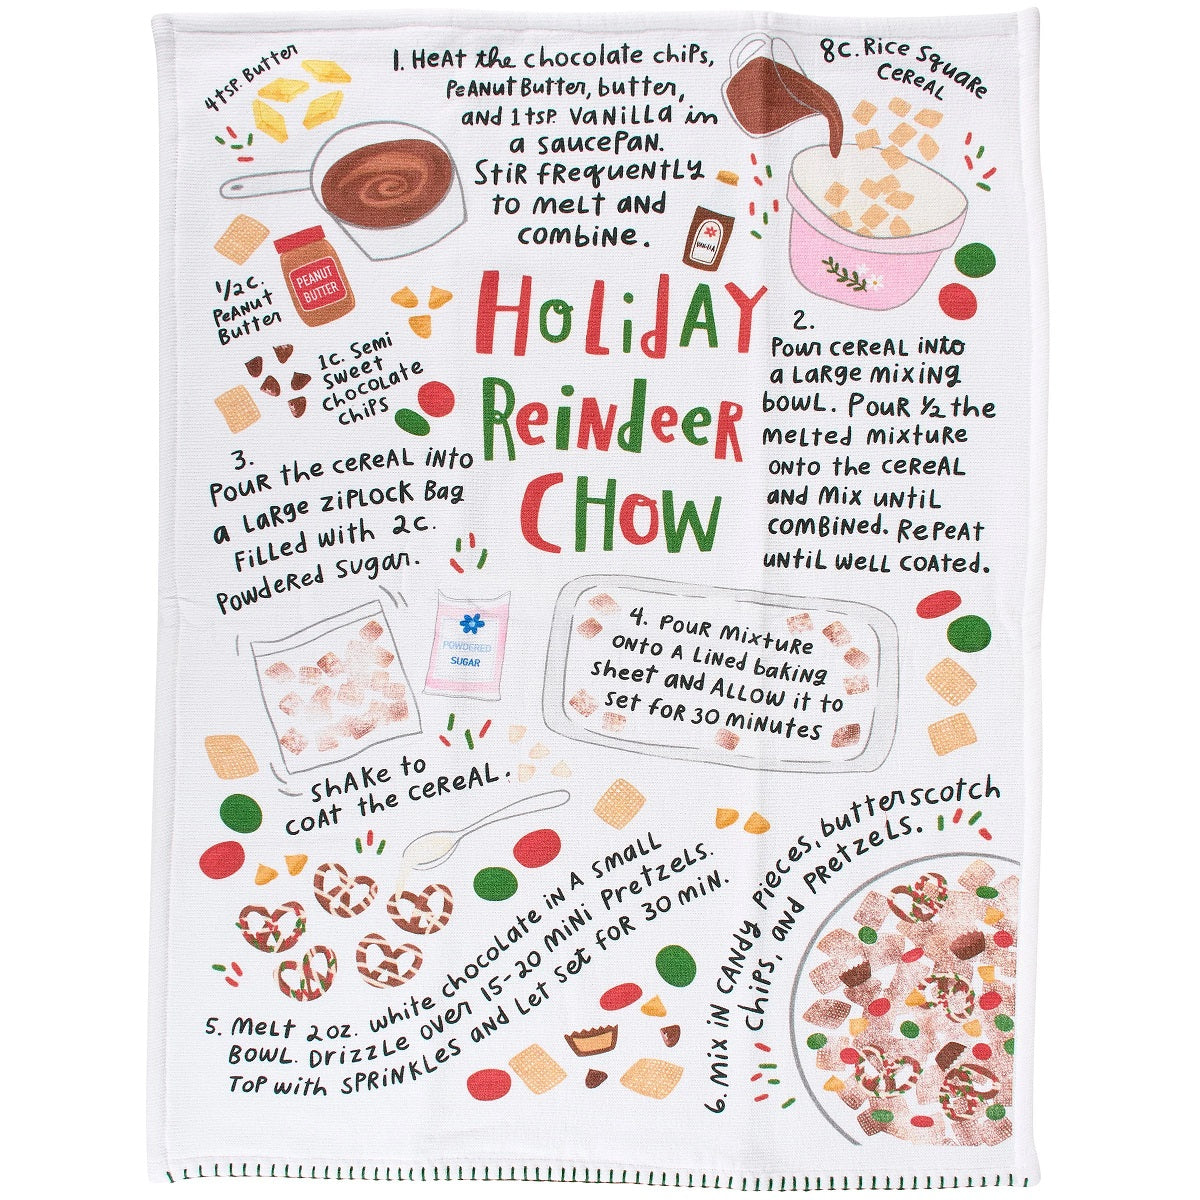 4 tsp. Butter
1. Heat the chocolate chips,
Peanut Butter, butter,
and 1 tsp. vanilla in
a saucepan.
Stir frequently
to melt and
combine.
8c. Rice Square
Cereal
VANILLA
PEANUT
BUTTER
1/2 c.
Peanut
Butter
1c. Semi
Sweet
Chocolate
Chips
Holiday
Reindeer
Chow
2.
Pour cereal into
a large mixing
bowl. Pour 1/2 the
melted mixture
onto the cereal
and mix until
combined. Repeat
until well coated.
3.
Pour the cereal into
a large ziplock bag
filled with 2c.
powdered sugar.
POWDERED
SUGAR
Shake to
coat the cereal.
4. Pour mixture
onto a lined baking
sheet and allow it to
set for 30 minutes
5. Melt 2 oz. white chocolate in a small
bowl. Drizzle over 15-20 mini pretzels.
Top with sprinkles and let set for 30 min.
6. Mix in candy pieces, butterscotch
chips, and pretzels.